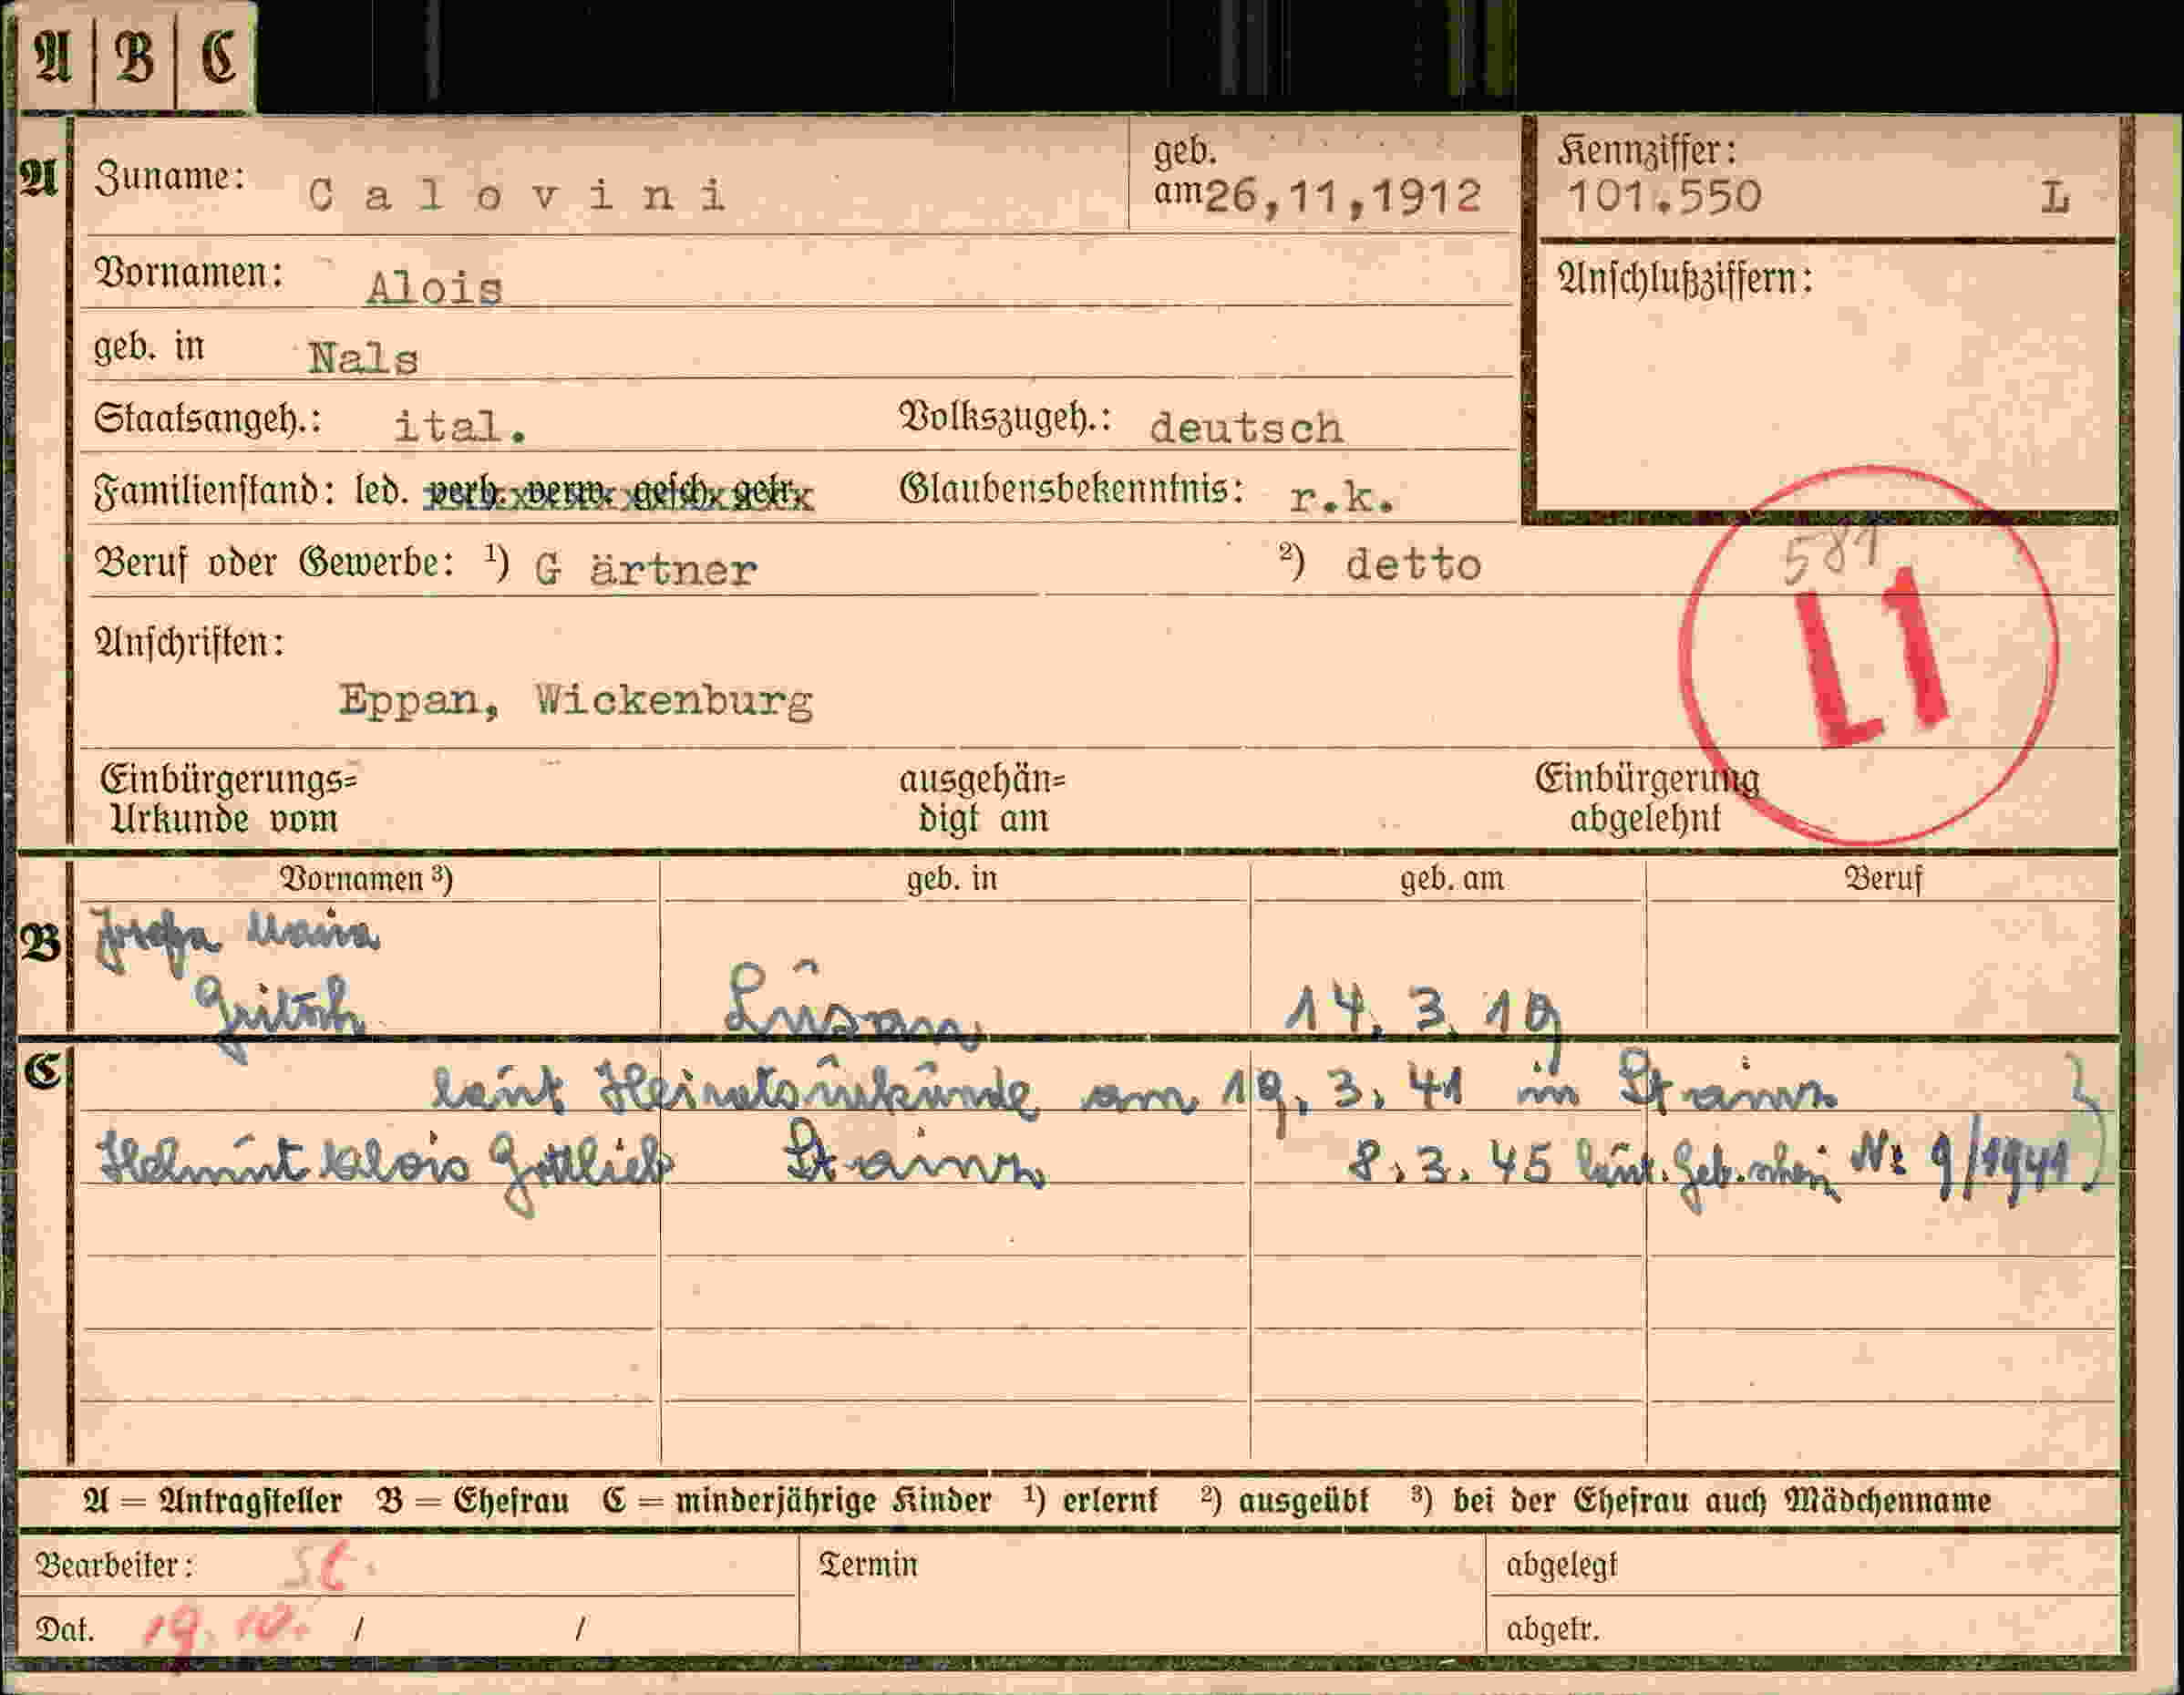 A | B | C
A Zuname: Calovini geb. am 26,11,1912 Kennziffer: 101.550 L
Vornamen: Alois Anschlußziffern:
geb. in Nals
Staatsangeh.: ital. Volkszugeh.: deutsch
Familienstand: led. verh. verw. gesch. getr. Glaubensbekenntnis: r.k.
581
Beruf oder Gewerbe: ¹) G ärtner ²) detto
L1
Anschriften:
Eppan, Wickenburg
Einbürgerungs= ausgehän= Einbürgerung
Urkunde vom digt am abgelehnt
Vornamen ³) geb. in geb. am Beruf
B Josefa Maria
Gritsch Lüsan 14. 3. 19
C laut Heiratsurkunde am 19. 3. 41 in Stainz
Helmut Alois Gottlieb Stainz 8. 3. 45 laut. Geb.schein Nr 9/1941
A = Antragsteller B = Ehefrau C = minderjährige Kinder ¹) erlernt ²) ausgeübt ³) bei der Ehefrau auch Mädchenname
Bearbeiter: St. Termin abgelegt
Dat. 19. 10. / / abgetr.